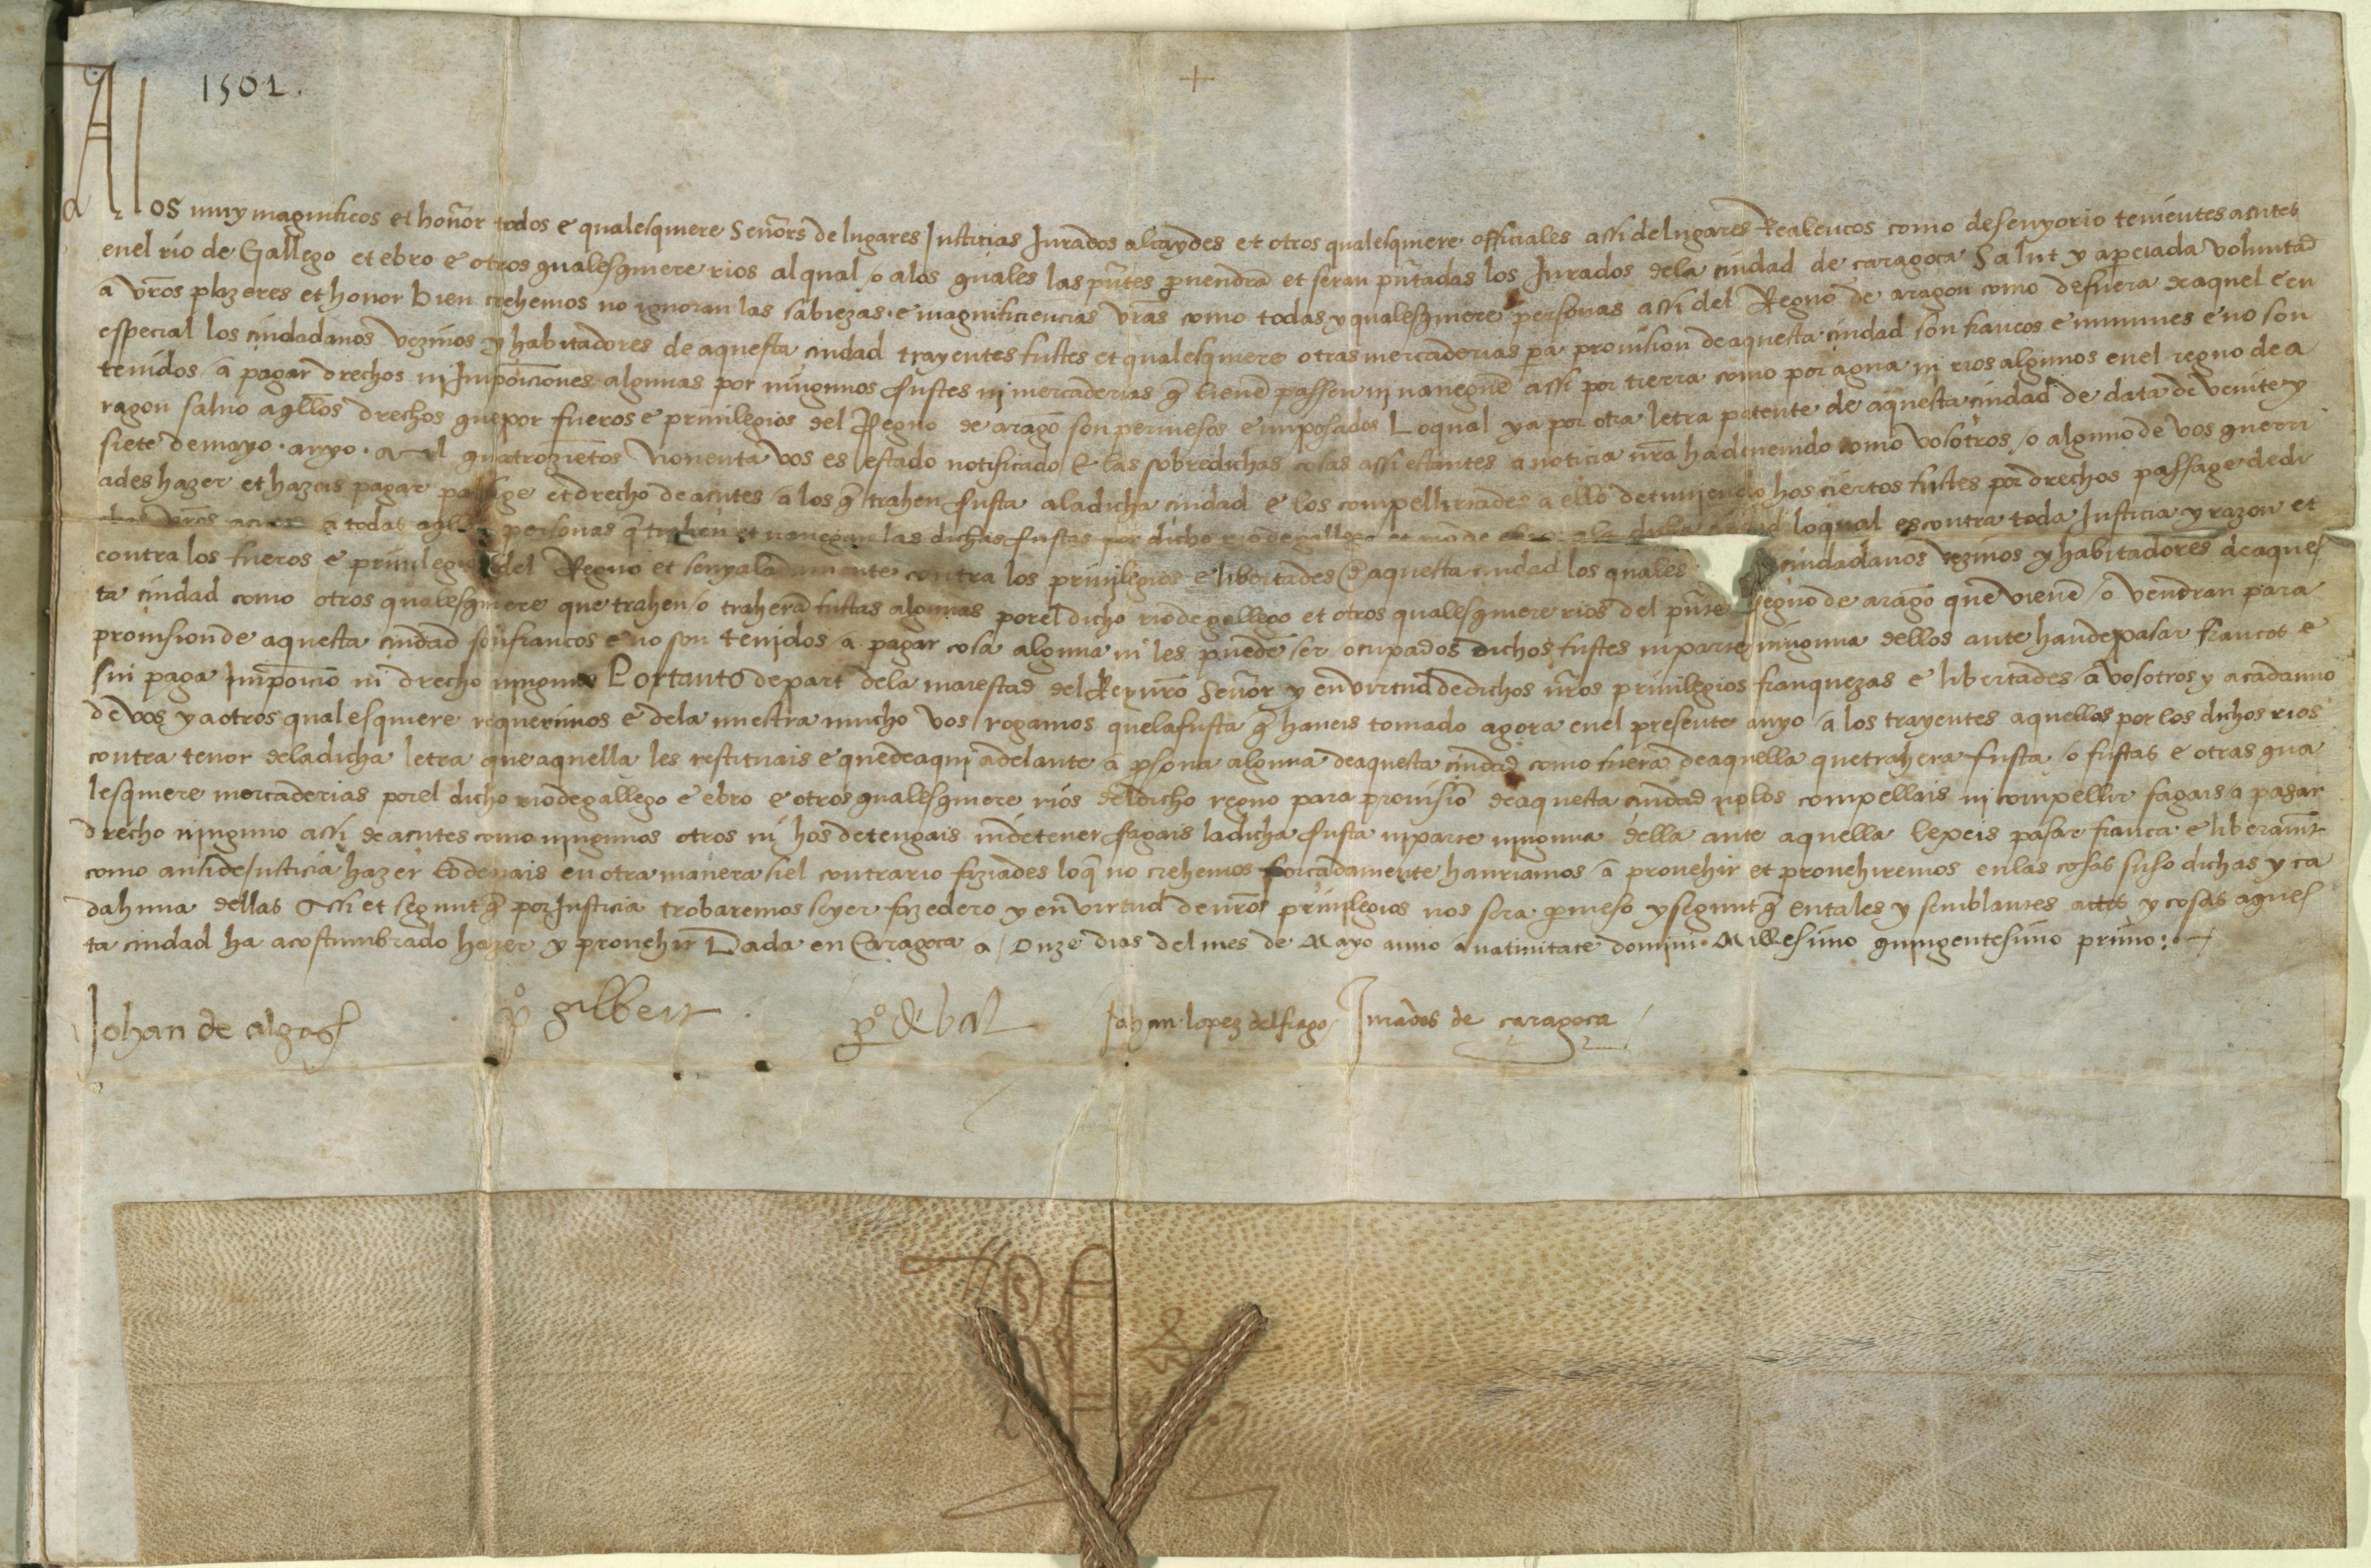 1501.
+
A los muy magnificos et honor̃ todos e qualesquiere Señors de lugares Justicias Jurados alcaydes et otros qualesquiere officiales assi de lugares Realencos como de senyorio tenientes acutes
en el rio de Gallego et ebro e otros qualesquiere rios al qual / o alos quales las pñtes puendrã et seran pñtadas los Jurados dela ciudad de caragoca Salut y aperciada voluntad
a vr̃os plazeres et honor bien crehemos no ignoran las sabiezas e magnificiencias vr̃as como todas y qualesquiere personas assi del Regno de aragon como de fuera de aquel e en
especial los ciudadanos vezinos y habitadores de aquesta ciudad trayentes fustes et qualesquiere otras mercaderias pa prouision de aquesta ciudad son francos e inmunes e no son
tenidos / a pagar drechos ni Impoiciones algunas por ningunos fustes ni mercaderias q̃ vienẽ passen ni naueguẽ assi por tierra como por agua ni rios algunos en el regno de a
ragon saluo aq̃llos drechos que por fueros e priuilegios del Regno de aragõ son permesos e imposados Lo qual ya por otra letra patente de aquesta ciudad de data de veinte y
siete de mayo . anyo . Mil quatrozietos Nonenta vos es estado notificado E las sobredichas cosas assi estantes a noticia nr̃a ha deuenido como vosotros / o alguno de vos querri
ades hazer et hazeis pagar passage et drecho de acutes / a los q̃ trahen fusta a la dicha ciudad e los compelliriades a ello deteniendo hos ciertos fustes por drechos passage de di
chos vr̃os acutes a todas aq̃llas personas q̃ trahen et nauegan las dichas fustas por dicho rio de gallego et rio de ebro a la dicha ciudad lo qual es contra toda Justicia y razon et
contra los fueros e priuilegios del Regno et senyaladamente contra los priuilegios e libertades de aquesta ciudad los quales ciudadanos vezinos y habitadores de aques
ta ciudad como otros qualesquiere que trahen / o traherã fustas algunas por el dicho rio de gallego et otros qualesquiere rios del pñte Regno de aragõ que vienẽ / o vendran para
prouision de aquesta ciudad son francos e no son tenidos a pagar cosa alguna ni les puedẽ ser / ocupados dichos fustes ni parte ninguna dellos ante han de pasar francos e
sin paga Impoicio ni drecho ninguno Portanto de part dela maiestad del Rey nr̃o Señor y en virtud de dichos nr̃os priuilegios franquezas e libertades / a vosotros y a cadauno
de vos y a otros qualesquiere requerimos e dela nuestra mucho vos rogamos que la fusta q̃ haueis tomado agora en el presente anyo / a los trayentes aquellas por los dichos rios
contra tenor de la dicha letra que aquella les restituais e que de aqui adelante a psona alguna de aquesta ciudad como fuera de aquella que trahera fusta / o fustas e otras qua
lesquiere mercaderias por el dicho rio de gallego e ebro e otros qualesquiere rios del dicho regno para prouisiõ de aquesta ciudad no los compellais ni compellir fagais a pagar
drecho ninguno assi de acutes como ningunos otros ni hos detengais ni detener fagais la dicha fusta ni parte ninguna della ante aquella lexeis pasar franca e liberamt̃
como ansi de Justicia hazer lo deuais en otra manera si el contrario faziades lo q̃ no crehemos forcadamente hauriamos / a prouehir et prouehiremos en las cosas suso dichas y ca
dahuna dellas Assi et segunt q̃ por Justicia trobaremos seyer fazedero y en virtud de nr̃os priuilegios nos sera pmeso y segunt q̃ en tales y semblantes actos y cosas aques
ta ciudad ha acostumbrado hazer y prouehir Dada en Caragoca a / Onze dias del mes de Mayo anno a natiuitate domini . Millesimo quingentesimo primo :
Johan de algas pº gilbert . pº Johan lopez del frago / Jurados de caragoca /